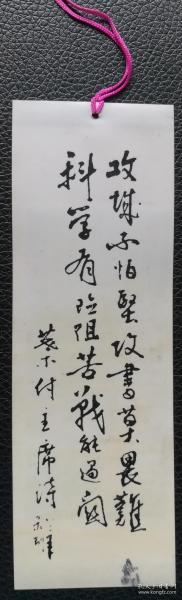 攻城不怕坚攻书莫畏难
科学有险阻苦战能过关
叶付主席诗